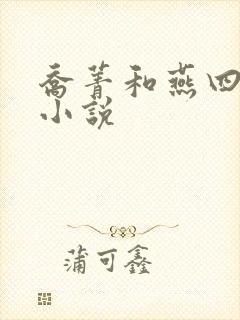 乔菁和燕四
小说
蒲可鑫